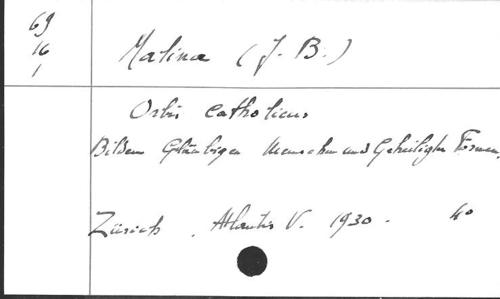 69
16
1
Malina (J. B.)
Orbis Catholicus
Bildern Gläubiger Menschen und Geheiligter Formen.
Zürich, Atlantis V. 1930. 4°